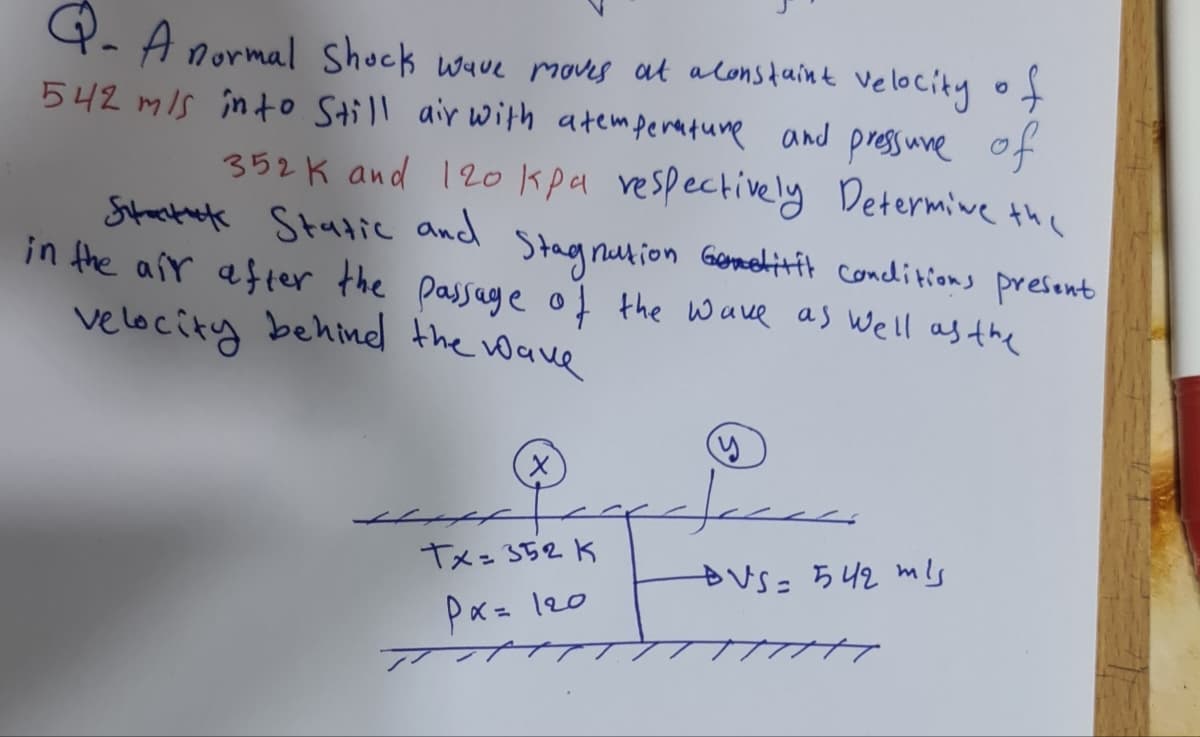 Q- A normal Shock wave moves at a constaint velocity of
542 m/s into Still air with a temperature and pressure of
352 K and 120 kpa respectively Determine the
Static and Stagnation conditions present
in the air after the passage of the wave as well as the
velocity behind the wave
x
y
Tx = 352 K
Px = 120
Vs = 542 m/s